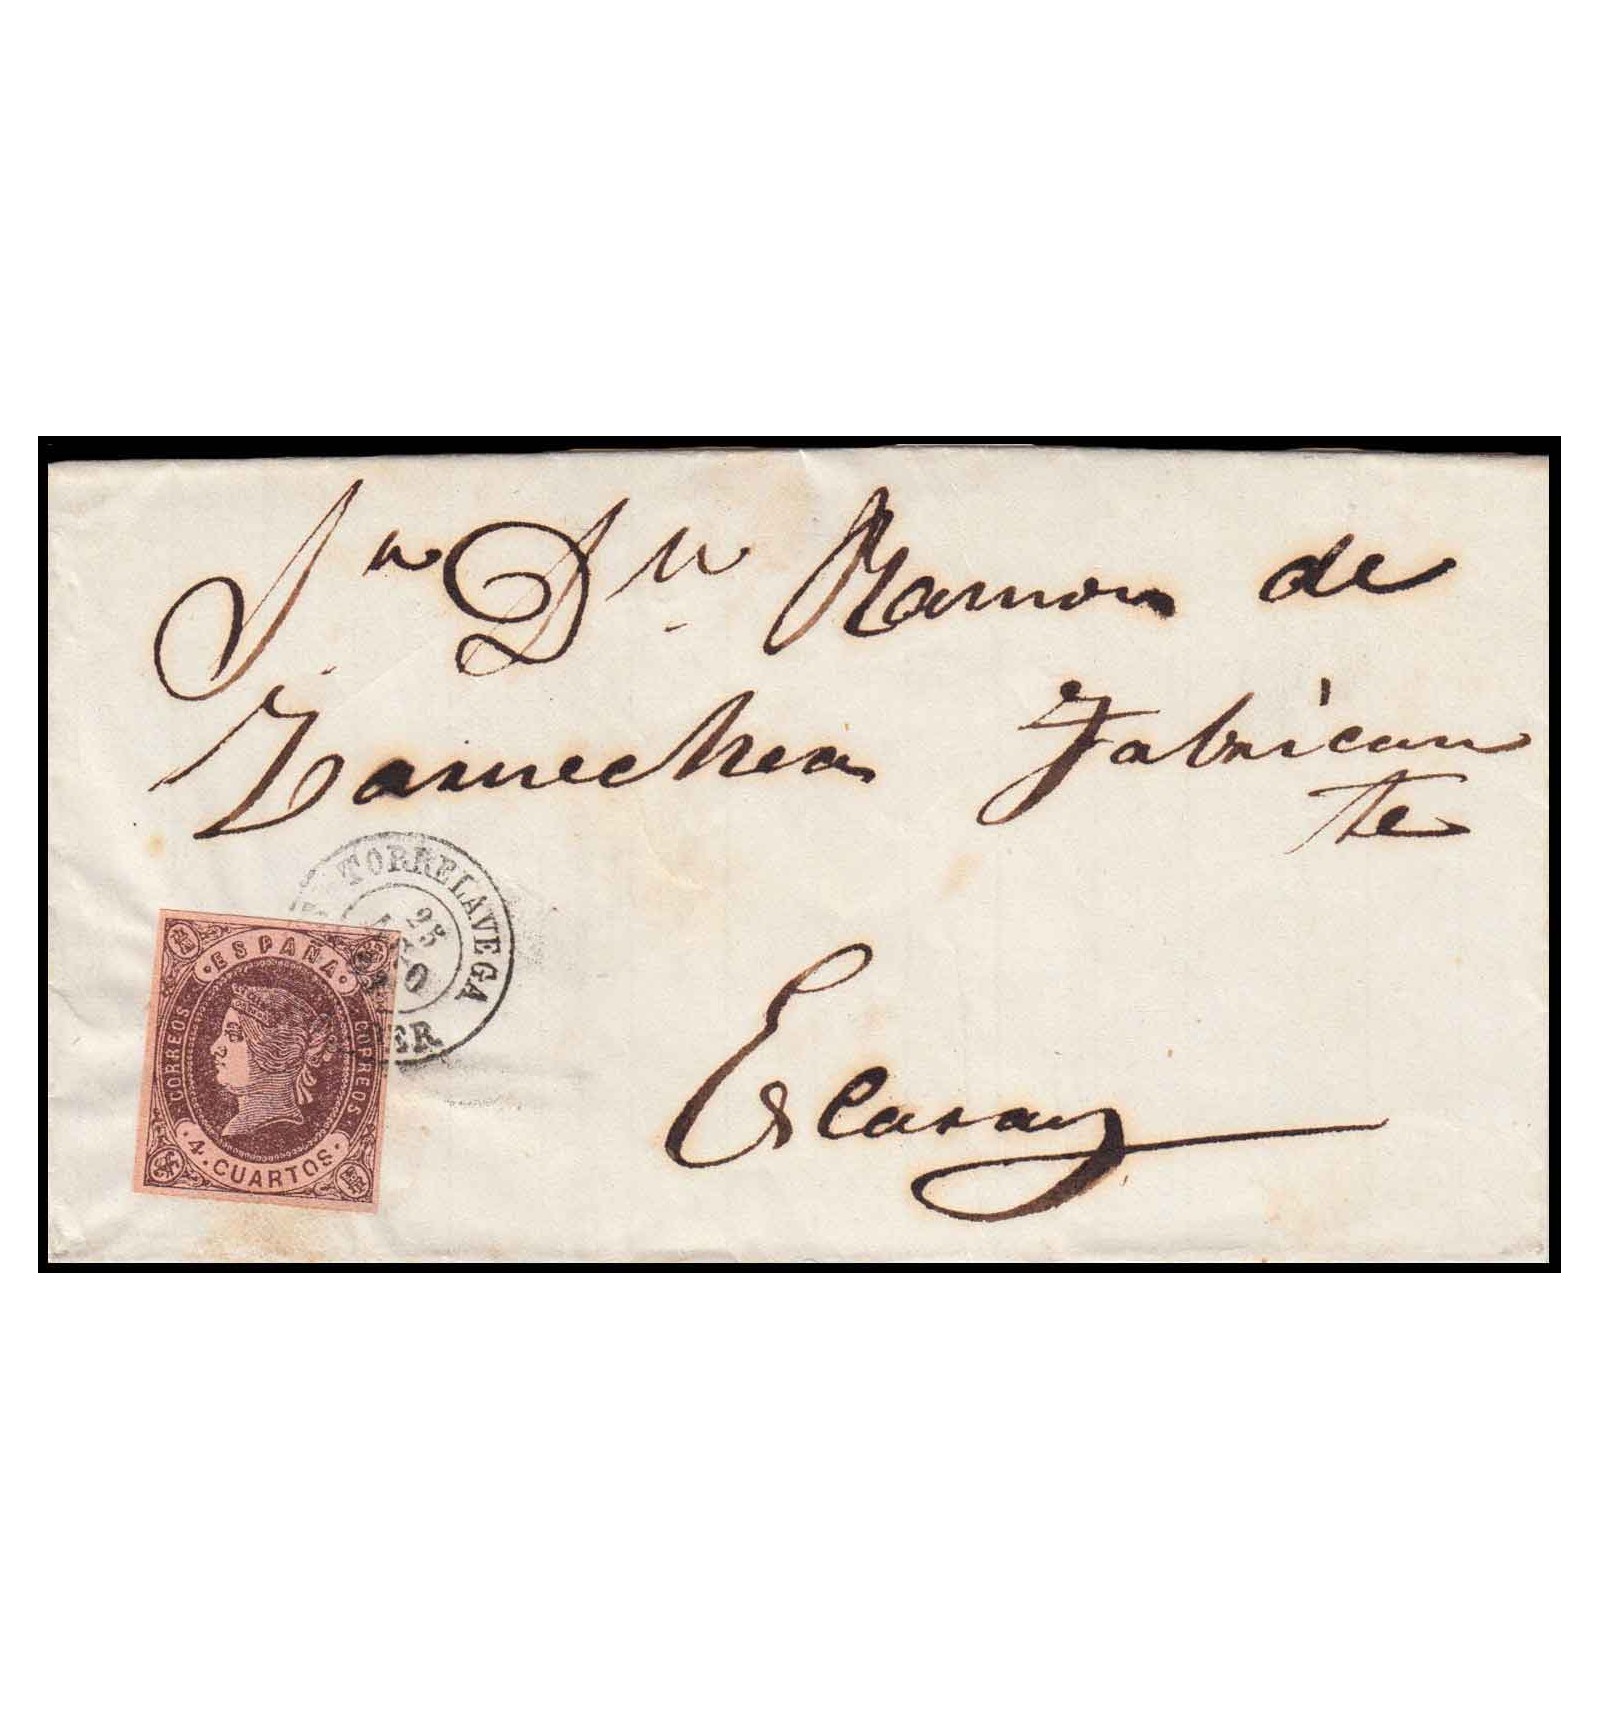 Sr. Dn. Ramon de
Zarruechea Fabrican
te
Escaray
TORRELAVEGA
25
AGO
ESPAÑA
CORREOS
CORREOS
4. CUARTOS